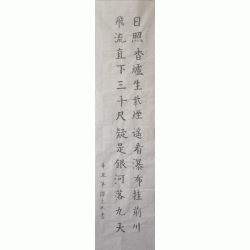 日照香爐生紫煙遥看瀑布挂前川
飛流直下三千尺疑是銀河落九天
辛丑年